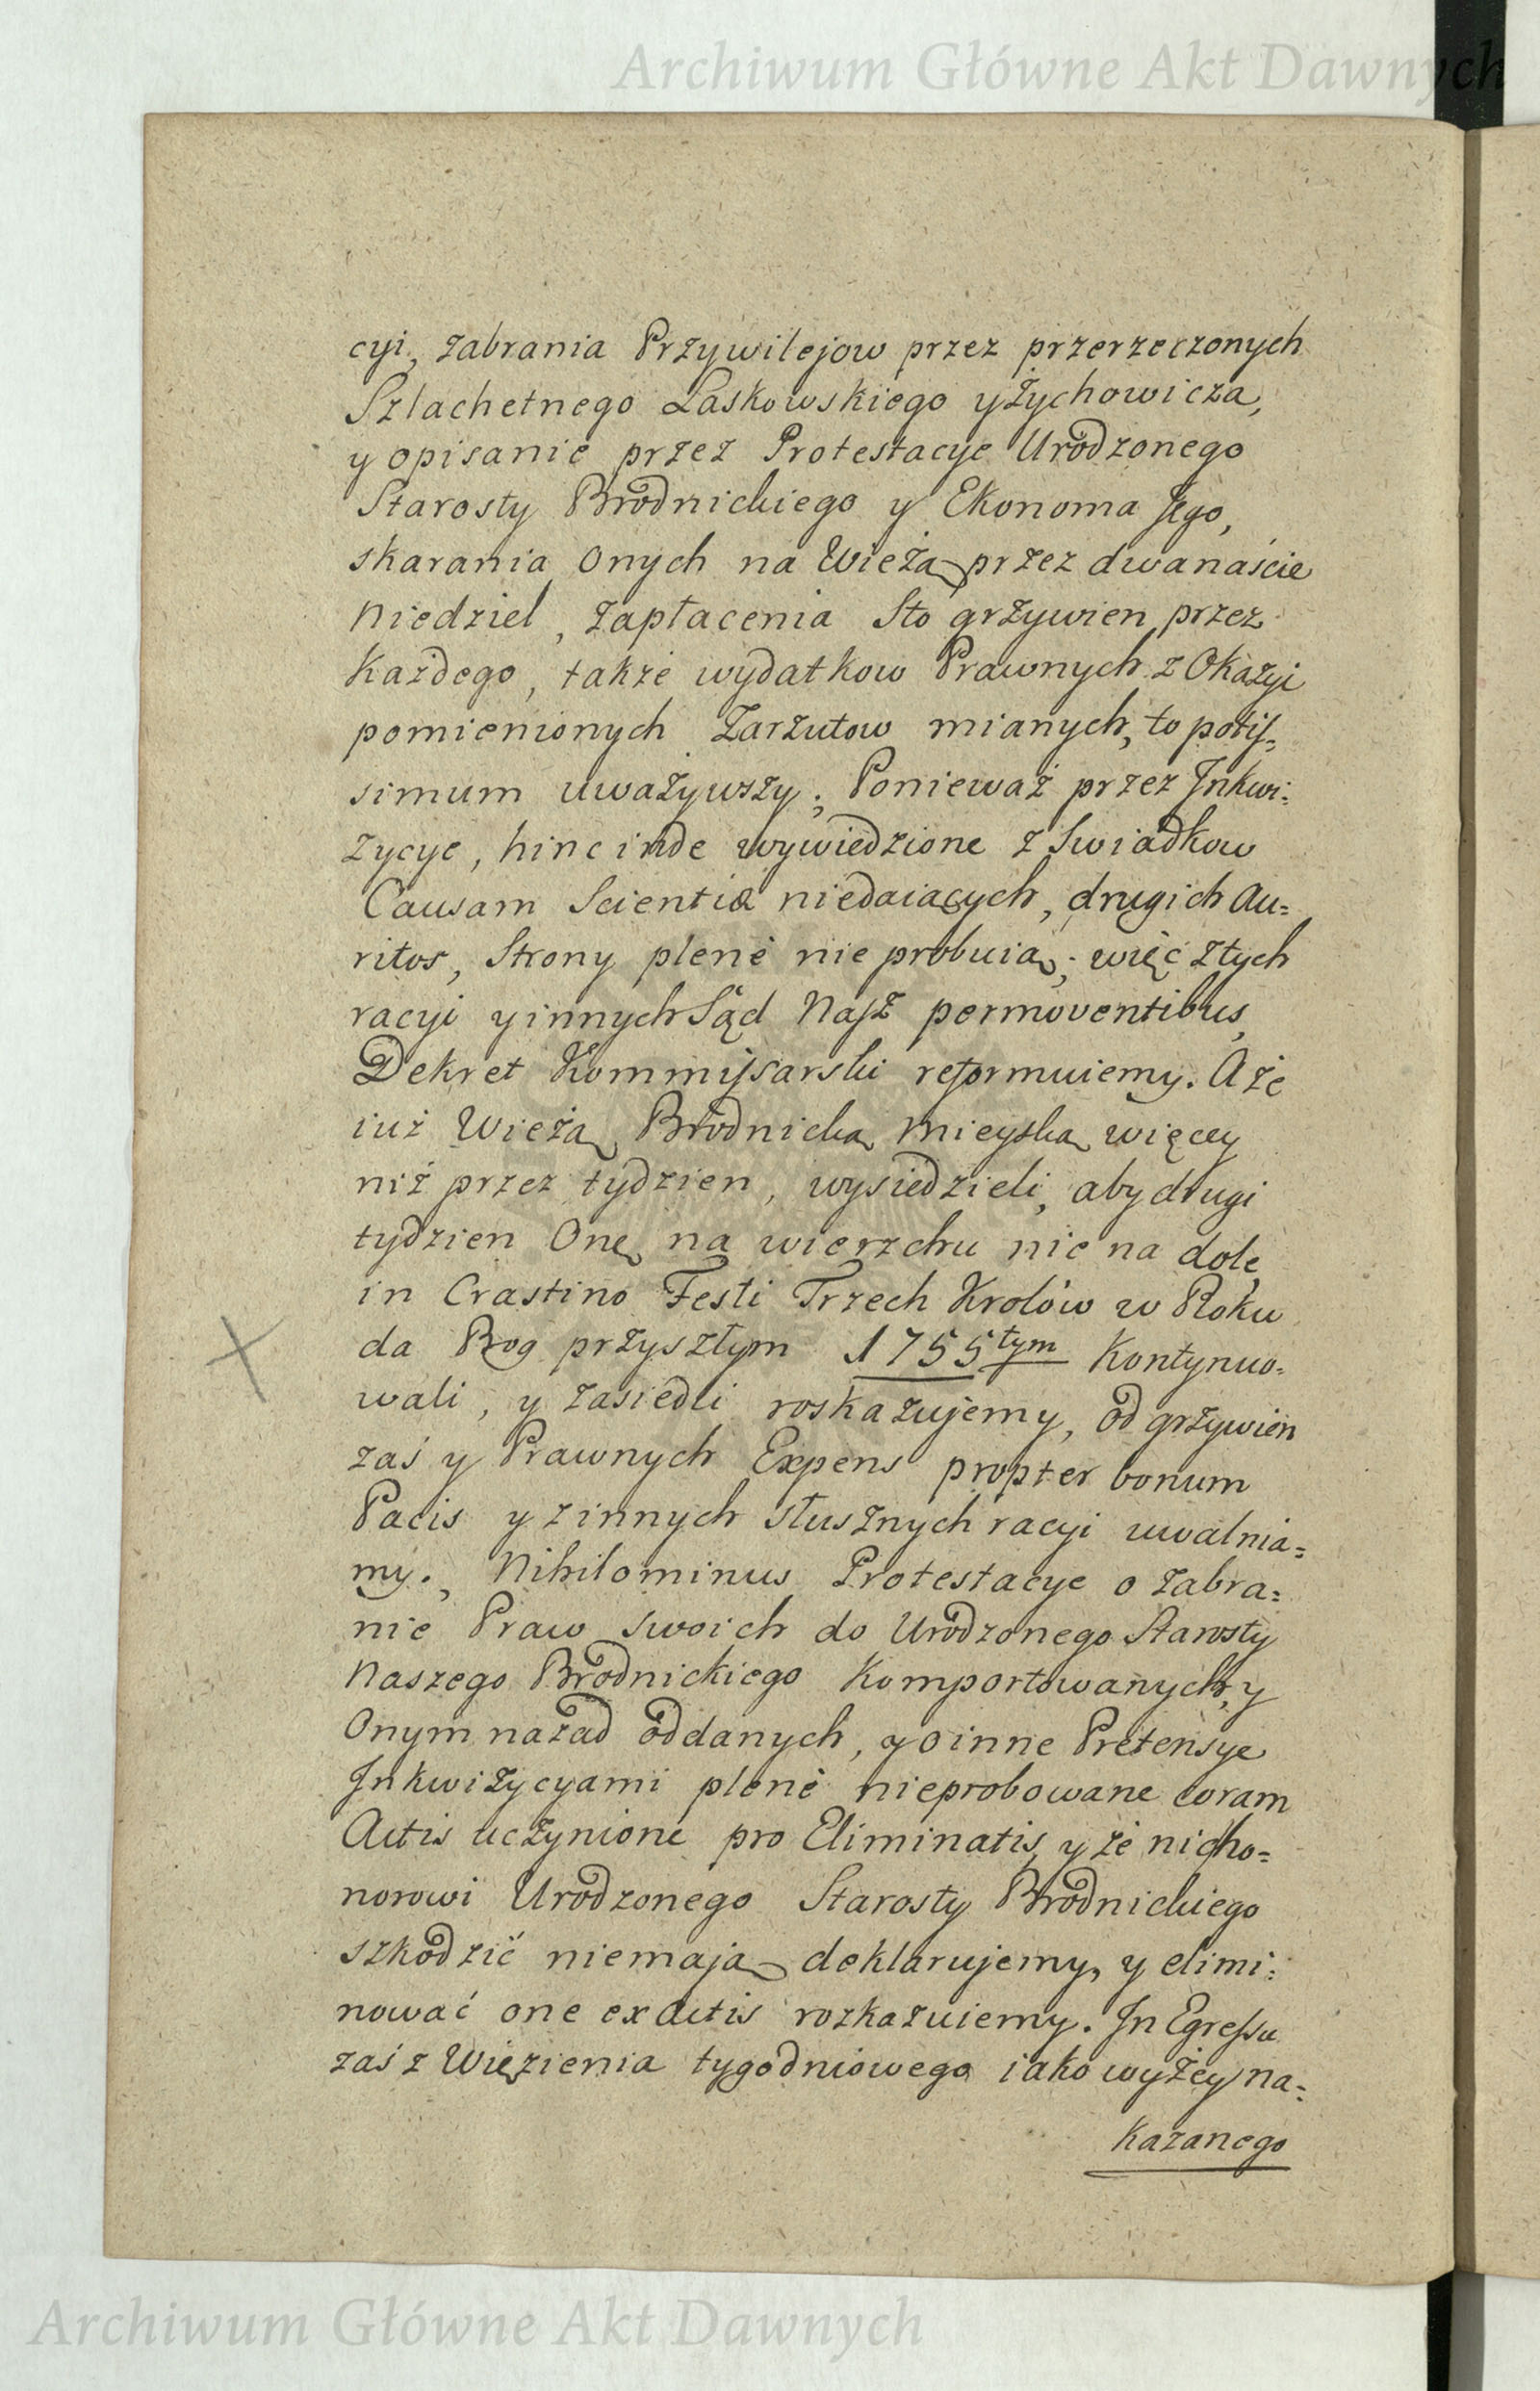 Archiwum Główne Akt Dawnych
cyi, zabrania Przywilejow przez przerzeczonych
Szlachetnego Laskowskiego y Żychowicza,
y opisanie przez Protestacye Urodzonego
Starosty Brodnickiego y Ekonoma Jego,
skarania onych na Wieżą przez dwanaście
Niedziel, zapłacenia Sto grzywien przez
Każdego, także wydatkow Prawnych z Okazyi
pomienionych Zarzutow mianych, to potis=
simum uważywszy; Ponieważ przez Inkwi=
zycye, hinc inde wywiedzione z Swiadkow
Causam Scientiæ niedaiących, drugich Au=
ritos, Strony plenè nie probuią; więc z tych
racyi y innych Sąd Nasz permoventibus,
Dekret Kommissarski reformuiemy. A że
iuż Wieżą Brodnicką Mieyską więcey
niż przez tydzien, wysiedzieli, aby drugi
tydzien Onę na wierzchu nie na dole,
in Crastino Festi Trzech Krolów w Roku
da Bog przyszłym 1755tym Kontynuo=
wali, y zasiedli roskazujemy, od grzywien
zaś y Prawnych Expens propter bonum
Pacis y z innych słusznych racyi uwalnia=
my., Nihilominus Protestacye o zabra=
nie Praw swoich do Urodzonego Starosty
Naszego Brodnickiego Komportowanych, y
Onym nazad oddanych, y o inne Pretensye
Inkwizycyami plenè nieprobowane coram
Actis uczynione pro Eliminatis, y że nic ho=
norowi Urodzonego Starosty Brodnickiego
szkodzić niemają deklarujemy, y elimi=
nować one ex Actis rozkazuiemy. In Egressu
zaś z Więzienia tygodniowego iako wyżey na=
kazanego
Archiwum Główne Akt Dawnych